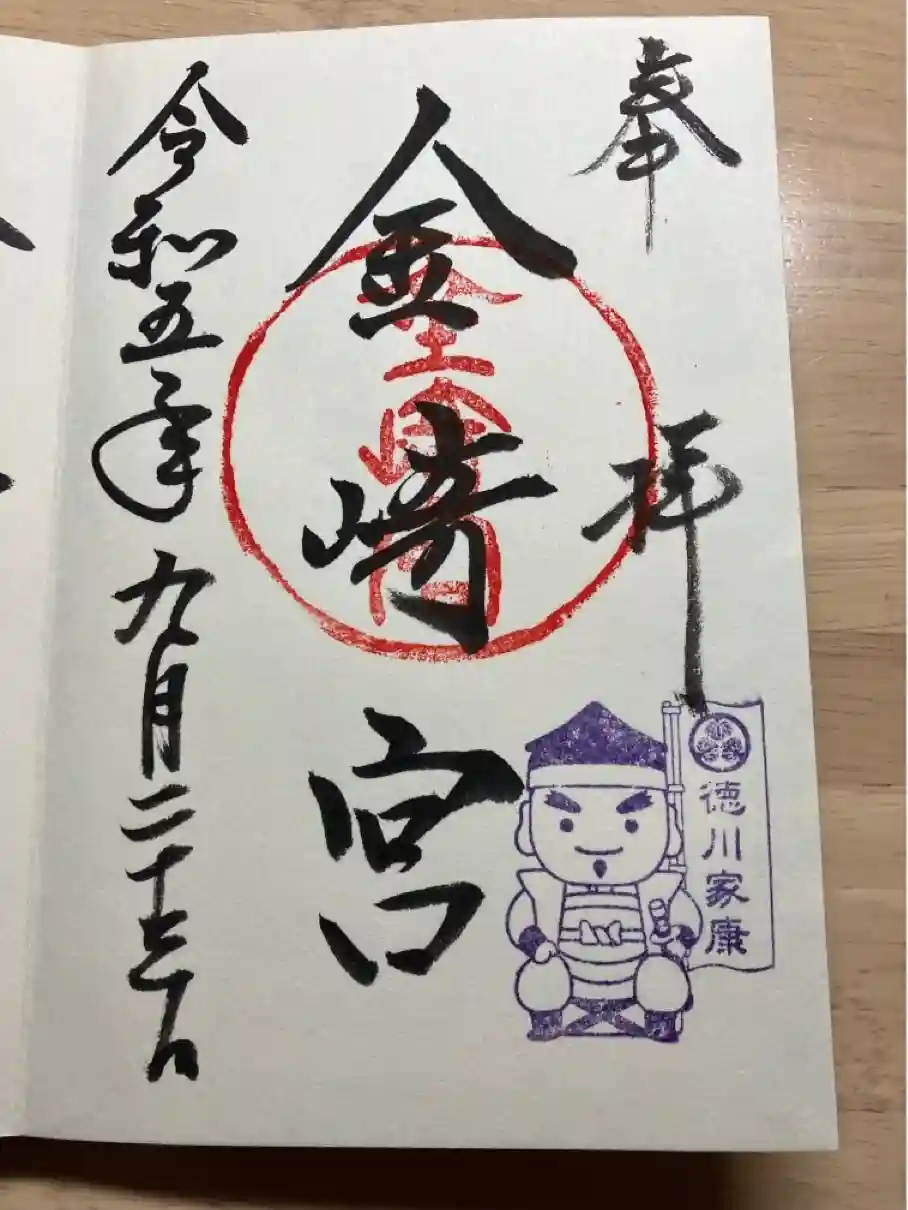 奉拝
金崎宮
金崎宮
徳川家康
令和五年九月二十三日